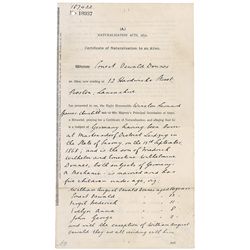 187433
No 18337
(A)
NATURALISATION ACTS, 1870.
Certificate of Naturalisation to an Alien.
Whereas Ernest Oswald Donner
an Alien, now residing at 12 Hardwicke Street
Preston, Lancashire
has presented to me, the Right Honourable Winston Leonard
Spencer Churchill one of His Majesty's Principal Secretaries of State,
a Memorial, praying for a Certificate of Naturalisation, and alleging that he
is a subject of Germany having been born
in the
State of Saxony on the 13th September
1865; and is the son of Frederick
Wilhelm and Ernestine Wilhelmine
Donner, both subjects of Germany
is married and has
five children under age, viz.
William August Oswald Donner aged years
Ernest Oswald
Frederick
Evelyn Anna
John George
and with the exception of William August
Oswald they are all residing with him